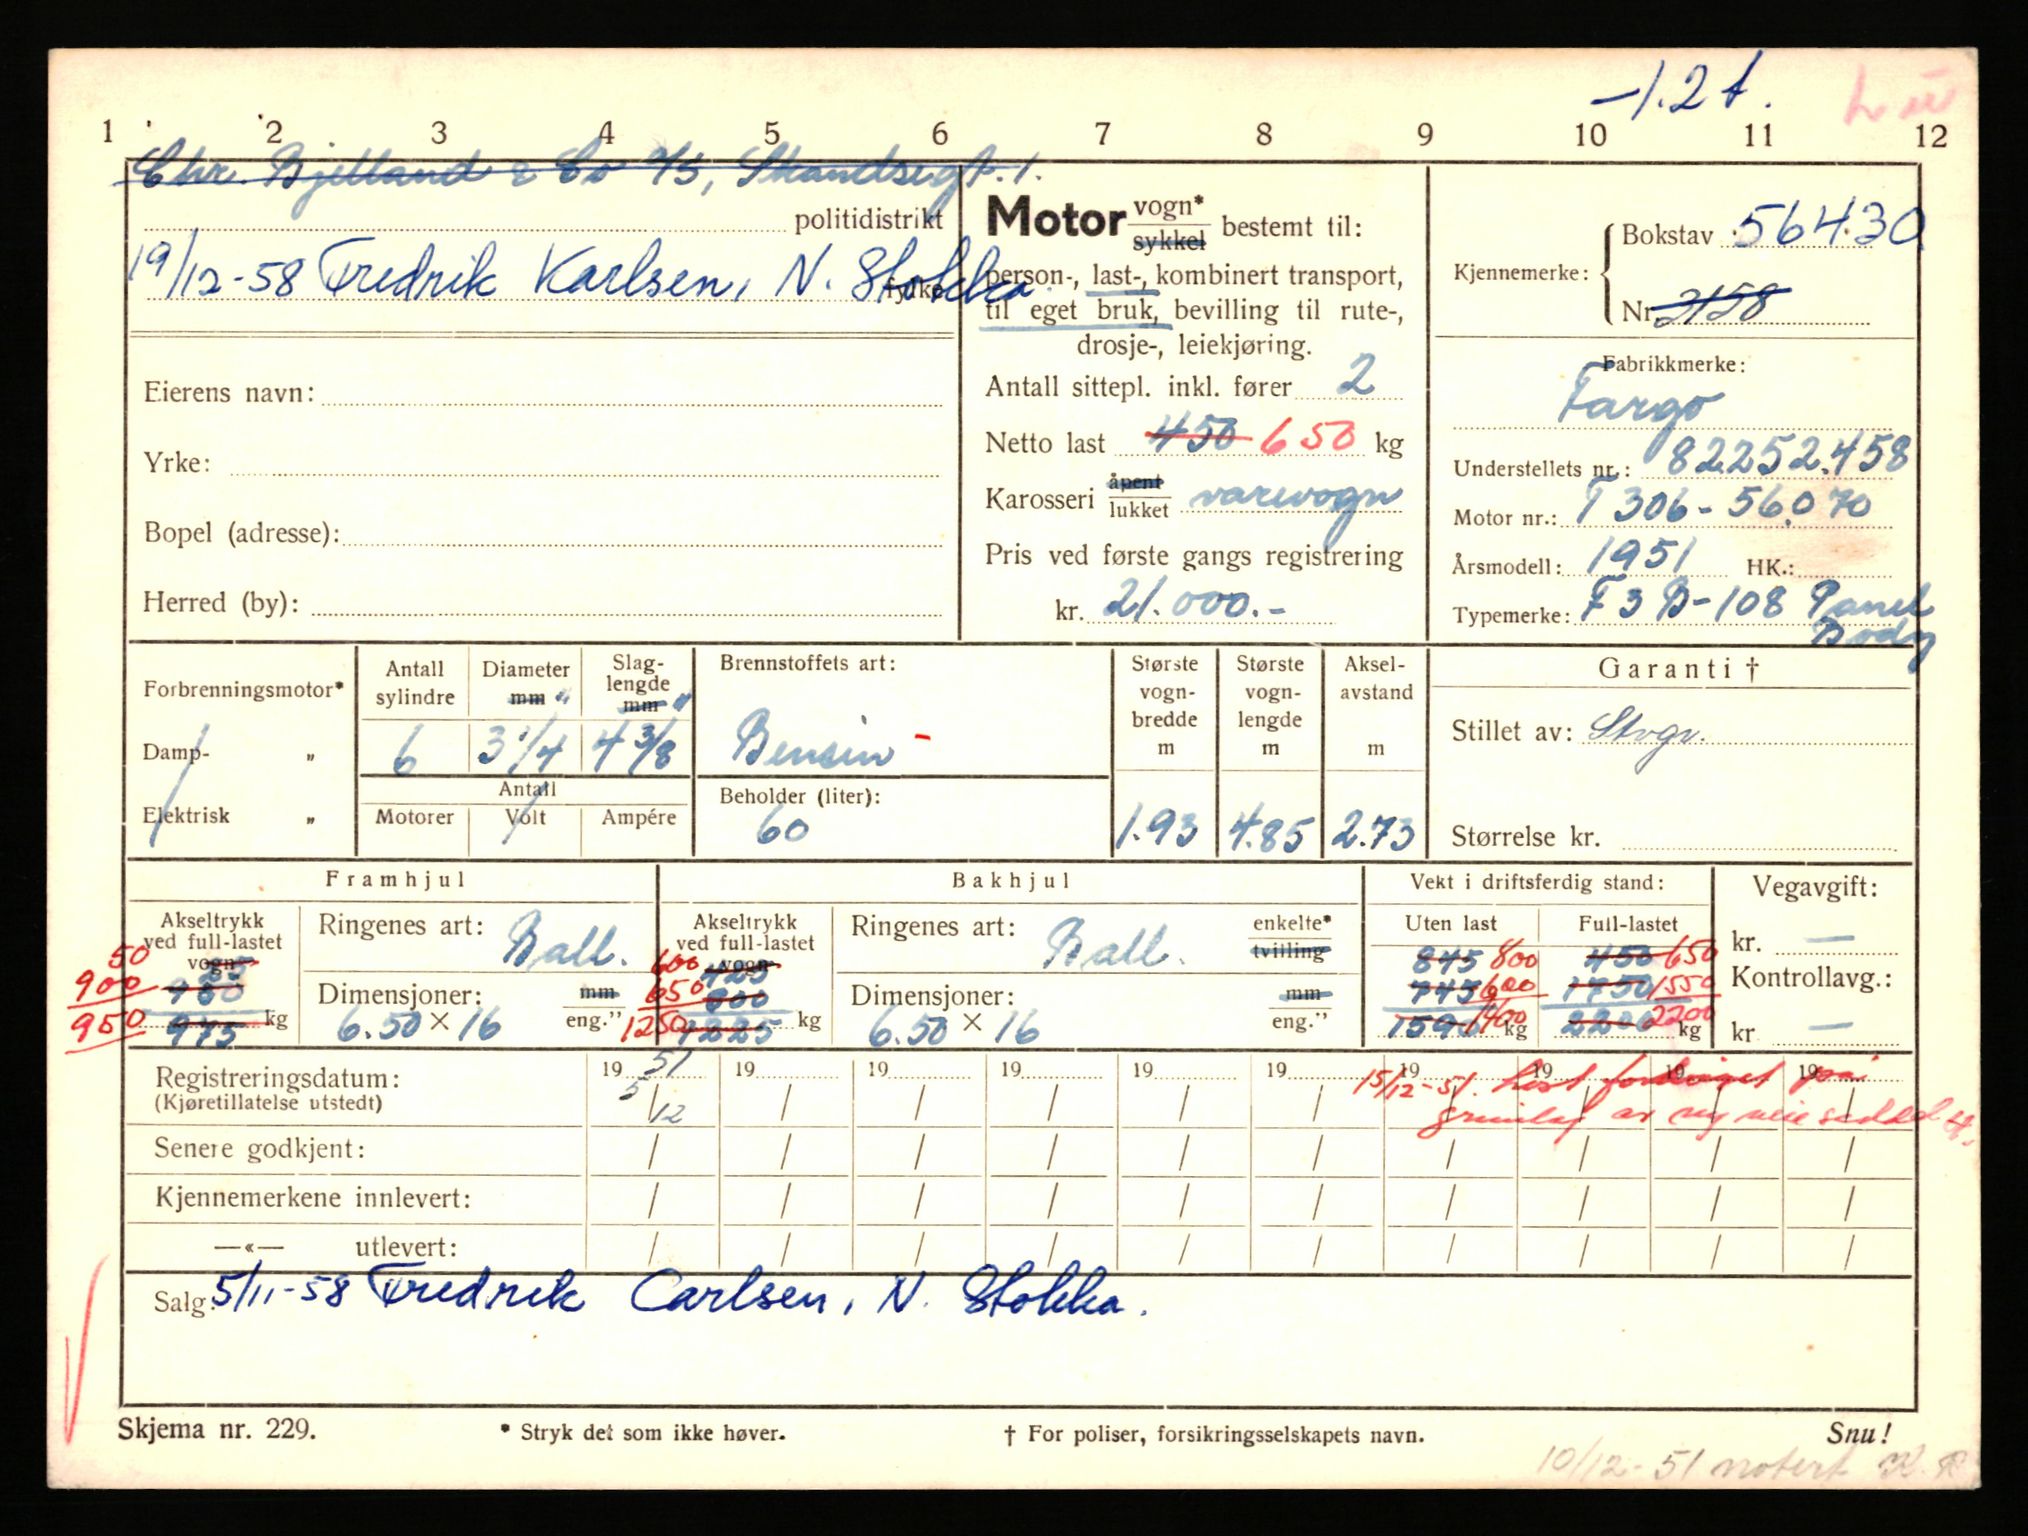 -1.2 t.
1 2 3 4 5 6 7 8 9 10 11 12
Chr. Bjelland & Co A/S, Skandsegt. 1.
politidistrikt
19/12-58 Fredrik Karlsen, N. Stokka.
fylke
Eierens navn:
Yrke:
Bopel (adresse):
Herred (by):
Motor vogn* sykkel bestemt til:
person-, last-, kombinert transport,
til eget bruk, bevilling til rute-,
drosje-, leiekjøring.
Antall sittepl. inkl. fører 2
Netto last 450 650 kg
Karosseri åpent lukket varevogn
Pris ved første gangs registrering
kr. 21.000.-
Kjennemerke: Bokstav 56430
Nr. 3158
Fabrikkmerke:
Fargo
Understellets nr.: 82252.458
Motor nr.: T 306-56.070
Årsmodell: 1951 HK.:
Typemerke: F 3 B-108 Panel
Body
Forbrenningsmotor*
Damp- „
Elektrisk „
Antall sylindre 6
Diameter mm " 3 1/4
Slag-lengde mm " 4 3/8
Antall
Motorer Volt Ampére
Brennstoffets art:
Bensin -
Beholder (liter):
60
Største vogn-bredde m 1.93
Største vogn-lengde m 4.85
Aksel-avstand m 2.73
Garanti †
Stillet av: Stvgr.
Størrelse kr.
Framhjul
Akseltrykk ved full-lastet vogn
50
900
950 975 kg
Ringenes art: Ball.
Dimensjoner: mm eng."
6.50 × 16
Bakhjul
Akseltrykk ved full-lastet vogn
600
650 800
1250 1225 kg
Ringenes art: Ball. enkelte* tvilling
Dimensjoner: mm eng."
6.50 × 16
Vekt i driftsferdig stand:
Uten last Full-lastet
845 800 450 650
745 600 1750 1550
1590 1400 kg 2200 2200 kg
Vegavgift:
kr. —
Kontrollavg.:
kr —
Registreringsdatum:
(Kjøretillatelse utstedt)
19 51 19 19 19 19 19 19 19 19 19
5/12
15/12-51. Last forhøiet på
grunnlag av ny veieseddel
Senere godkjent:
Kjennemerkene innlevert:
—«— utlevert:
Salg: 5/11-58 Fredrik Carlsen, N. Stokka.
Skjema nr. 229.
* Stryk det som ikke høver.
† For poliser, forsikringsselskapets navn.
Snu!
10/12-51 notert K.R